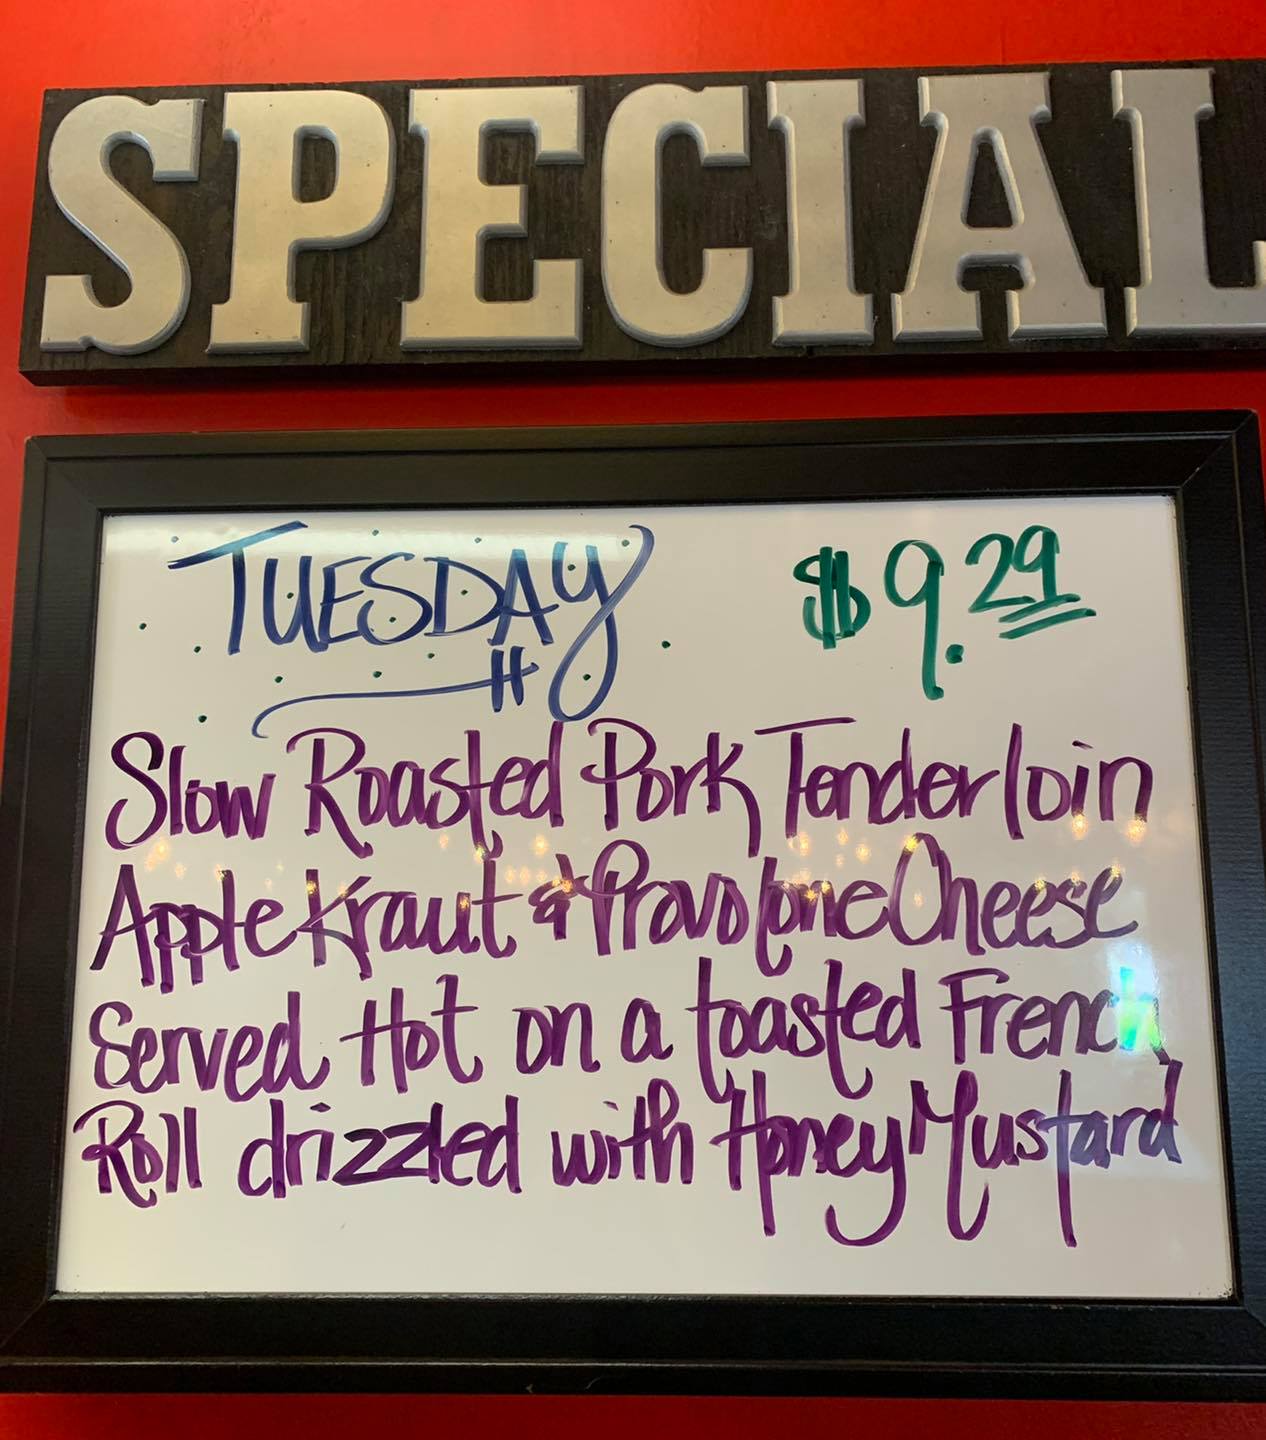 SPECIAL
TUESDAY $9.29
Slow Roasted Pork Tenderloin
Apple Kraut & Provolone Cheese
Served Hot on a toasted French
Roll drizzled with Honey Mustard